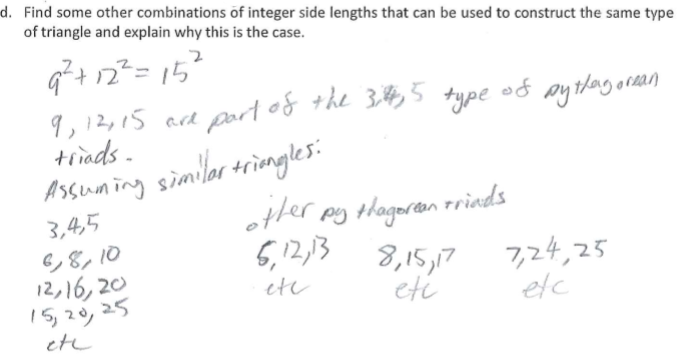 d. Find some other combinations of integer side lengths that can be used to construct the same type
of triangle and explain why this is the case.
9² + 12² = 15²
9, 12, 15 are part of the 3,4,5 type of pythagorean
triads.
Assuming similar triangles:
3,4,5
6, 8, 10
12, 16, 20
15, 20, 25
etc
other pythagorean triads
5, 12, 13
etc
8, 15, 17
etc
7, 24, 25
etc